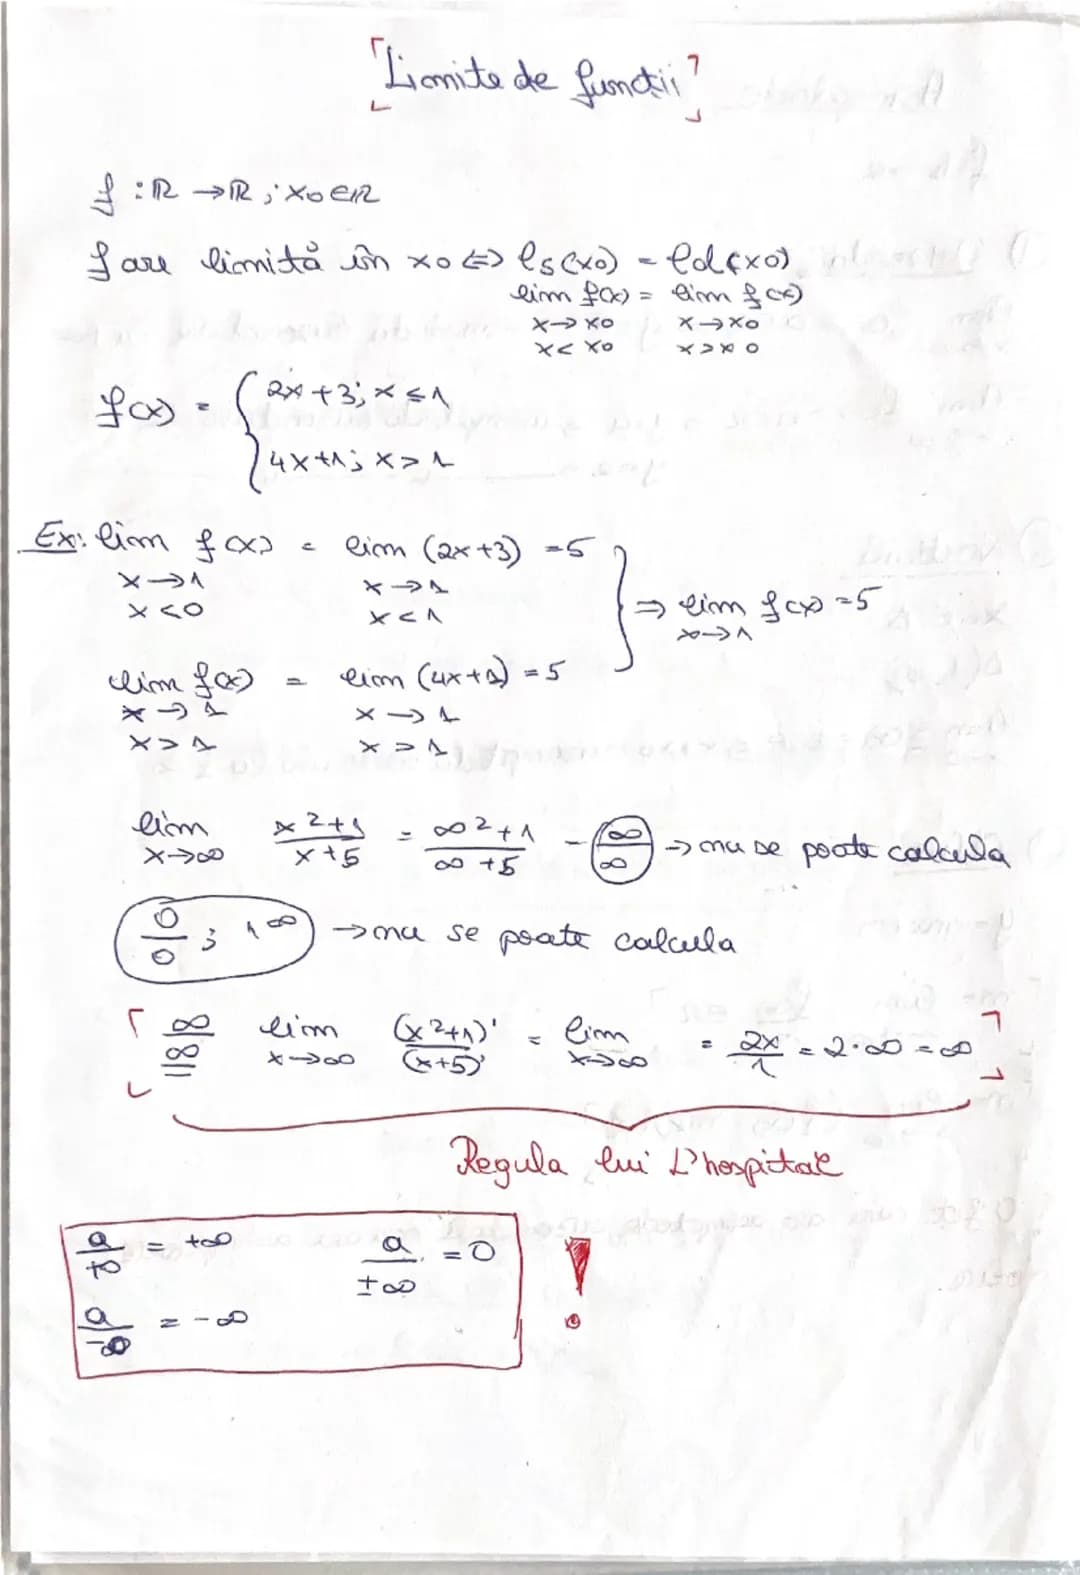 Limite de funcții
f : ℝ → ℝ ; x0 ∈ ℝ
f are limită în x0 ⇔ ls(x0) = ld(x0)
lim f(x) = lim f(x)
x→x0 x→x0
x<x0 x>x0
f(x) = { 2x+3; x ≤ 1
4x+1; x > 1
Ex: lim f(x) = lim (2x+3) = 5
x→1 x→1
x<0 x<1
} ⇒ lim f(x) = 5
x→1
lim f(x) = lim (4x+1) = 5
x→1 x→1
x>1 x>1
lim x²+1 / x+5 = ∞²+1 / ∞+5 = ∞/∞ → nu se poate calcula
x→∞
0/0 ; 1^∞ → nu se poate calcula
∞/∞ lim (x²+1)' / (x+5)' = lim = 2x/1 = 2·∞ = ∞
x→∞ x→∞
Regula lui L'hospital
a/+0 = +∞ a/±∞ = 0 !
a/-0 = -∞